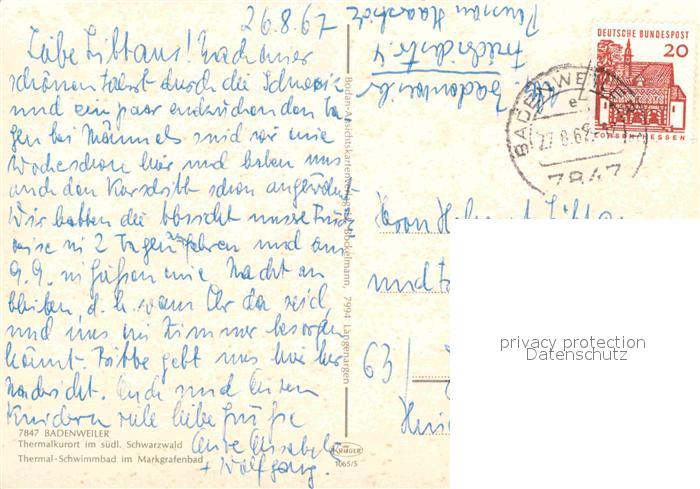 26.8.67
Liebe Littaus! Nach einer
schönen Fahrt durch die Schweiz
und ein paar entzückenden Ta
gen bei Männels sind wir eine
Woche schon hier und haben uns
auch den Kurschritt schon angewöhnt
Wir hatten die Absicht unsere Rück
reise in 2 Tagen zu fahren und am
9.9. in Gießen eine Nacht zu
bleiben, d.h. wenn Ihr da seid
und uns ein Zimmer besorgen
könnt. Bitte gebt uns hier her
Nachricht. Euch und Euren
Kindern viele liebe Grüße
Eure Annabella
+ Wolfgang.
7847 BADENWEILER
Thermalkurort im südl. Schwarzwald
Thermal-Schwimmbad im Markgrafenbad
Bodan-Ansichtskartenverlag Bockelmann, 7994 Langenargen
KRÜGER
1065/5
Pension
Friedrichstr. 4
Badenweiler
DEUTSCHE BUNDESPOST
20
LORSCH HESSEN
BADENWEILER
27.8.6
7847
Herrn
und
63/
privacy protection
Datenschutz